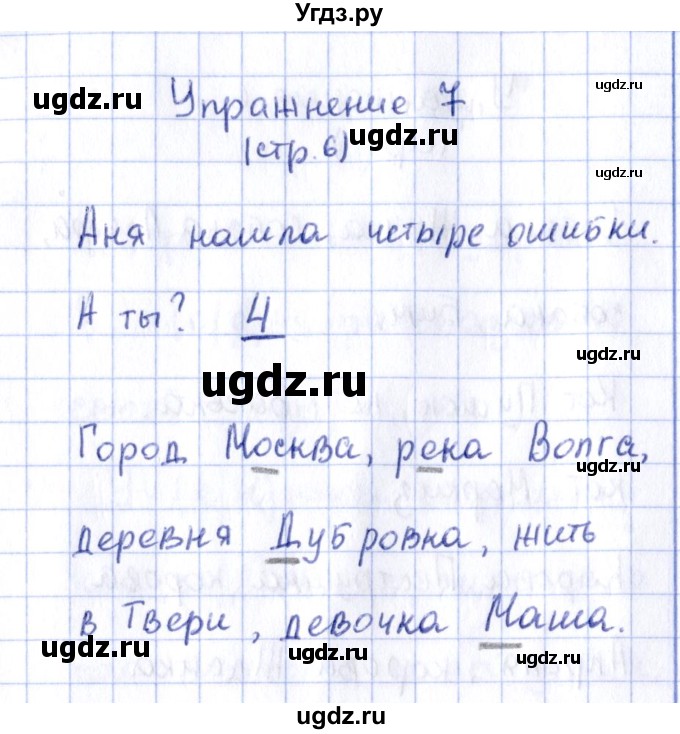 Угдз.ру
ugdz.ru
ugdz.ru
Упражнение 7
ugdz.ru
(стр.6)
ugdz.ru
Аня нашла четыре ошибки.
А ты? 4
ugdz.ru
ugdz.ru
Город Москва, река Волга,
ugdz.ru
деревня Дубровка, жить
в Твери, девочка Маша.
ugdz.ru
ugdz.ru
ugdz.ru
ugdz.ru